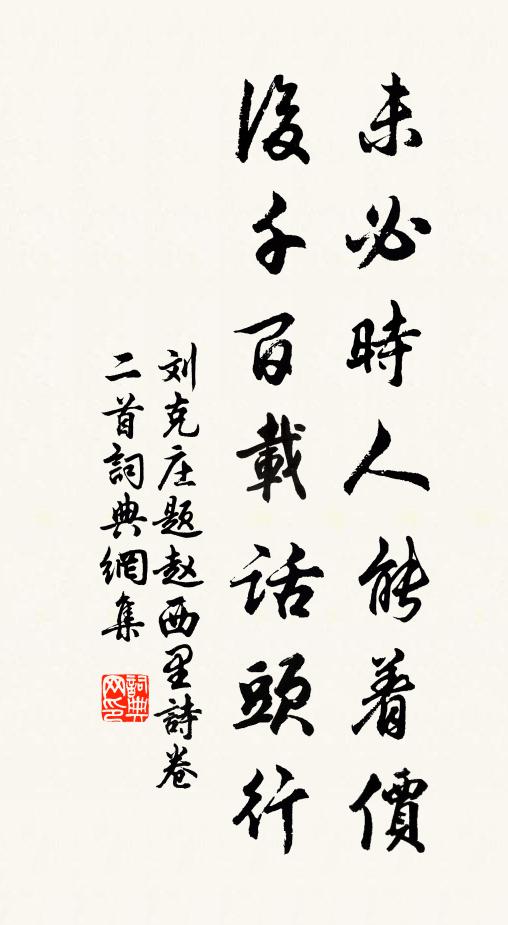 未必時人能着價
後千百載話頭行
刘克庄题赵西里詩卷
二首詞典網集
詞典
网印